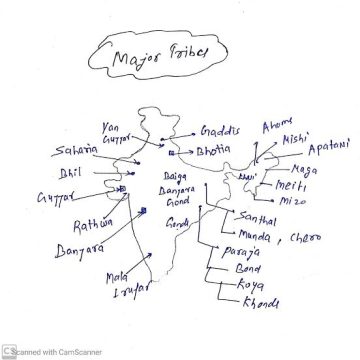 Major Tribes
Van
Gujjar
Gaddis
Bhotia
Ahoms
Mishi
Apatani
Naga
Meiti
Mizo
Saharia
Bhil
Gujjar
Rathwa
Banjara
Baiga
Banjara
Gond
Gondi
Santhal
Munda, Chero
Paraja
Bond
Koya
Khonds
Mala
Irular
CS Scanned with CamScanner